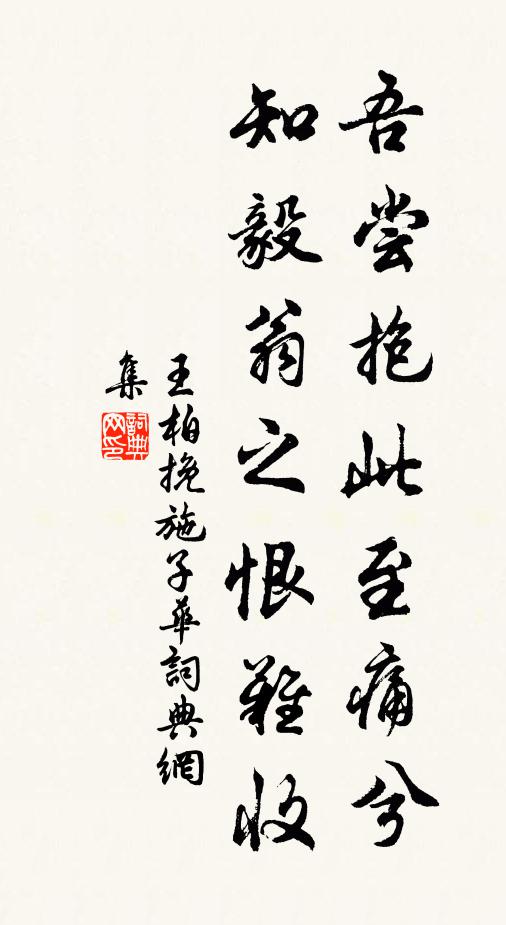 吾尝抱此至痛兮
知毅翁之恨難收
王柏挽施子華詞典網
集
詞典
网印